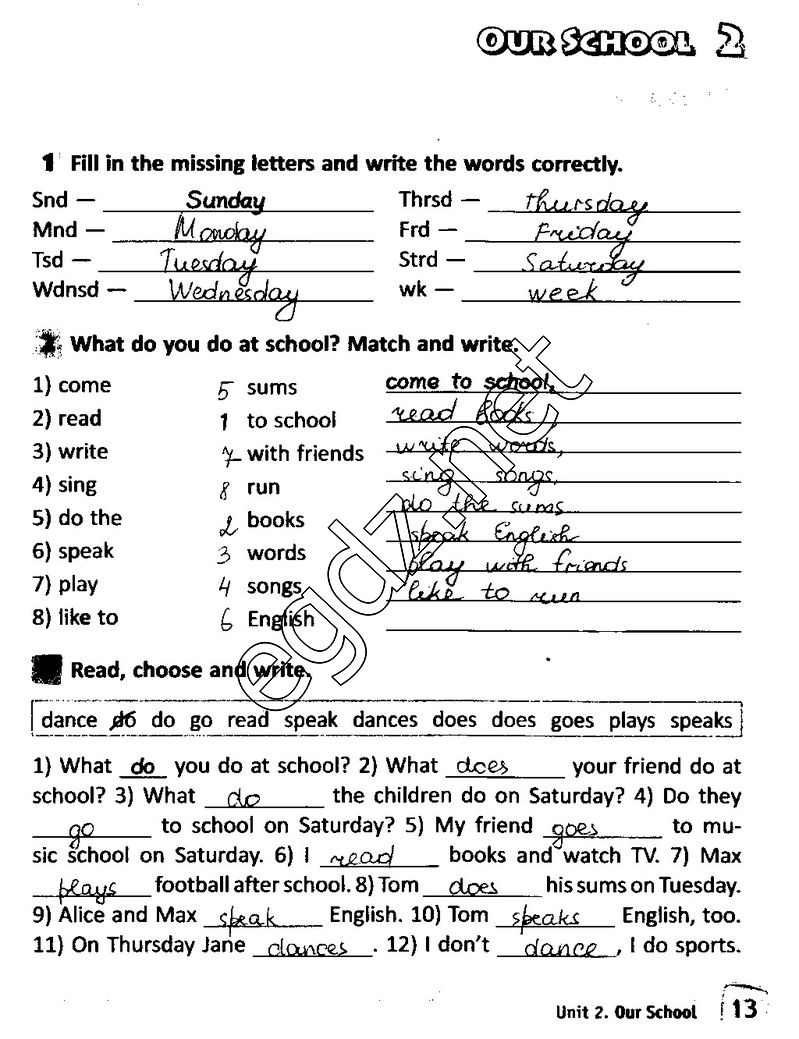 OUR SCHOOL 2
1 Fill in the missing letters and write the words correctly.
Snd — Sunday Thrsd — thursday
Mnd — Monday Frd — Friday
Tsd — Tuesday Strd — Saturday
Wdnsd — Wednesday wk — week
2 What do you do at school? Match and write.
1) come 5 sums come to school,
2) read 1 to school read books,
3) write 7 with friends write words,
4) sing 8 run sing songs,
5) do the 2 books do the sums
6) speak 3 words speak English
7) play 4 songs play with friends
8) like to 6 English like to run
Read, choose and write.
dance do do go read speak dances does does goes plays speaks
1) What do you do at school? 2) What does your friend do at
school? 3) What do the children do on Saturday? 4) Do they
go to school on Saturday? 5) My friend goes to mu-
sic school on Saturday. 6) I read books and watch TV. 7) Max
plays football after school. 8) Tom does his sums on Tuesday.
9) Alice and Max speak English. 10) Tom speaks English, too.
11) On Thursday Jane dances. 12) I don't dance, I do sports.
Unit 2. Our School 13
egdz.net